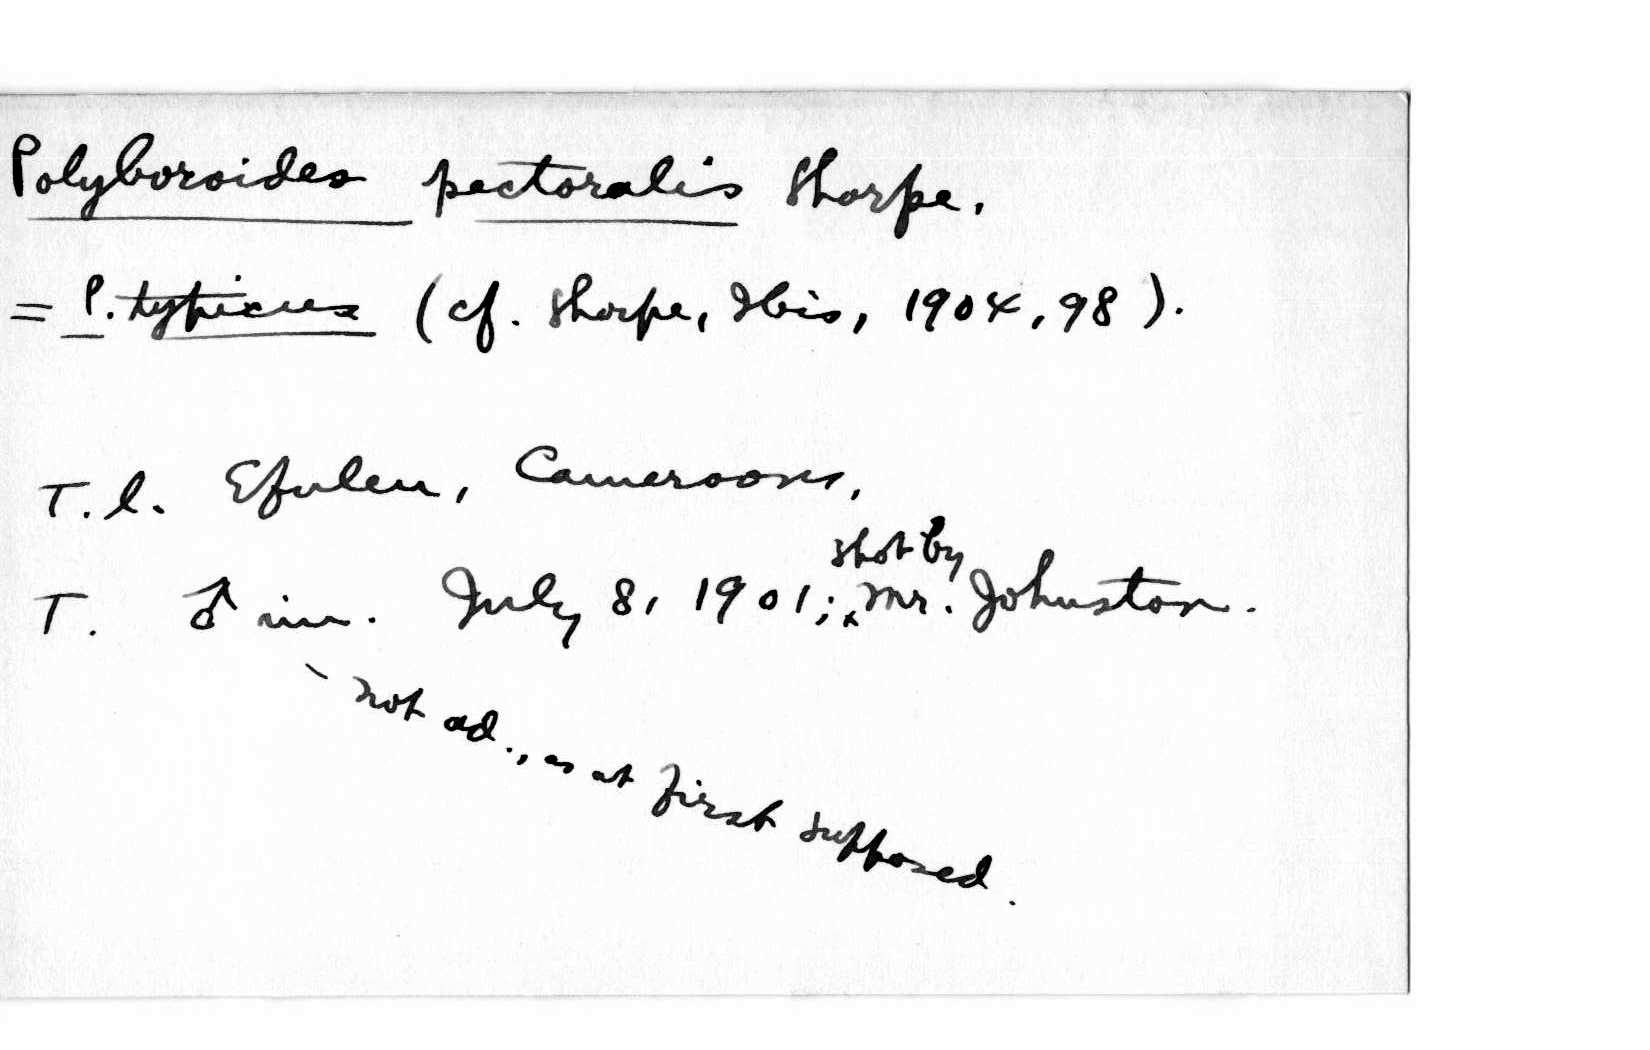 Polyboroides pectoralis Sharpe.
= P. typicus (cf. Sharpe, Ibis, 1904, 98).
T.l. Efulen, Cameroons,
shot by
T. ♂ im. July 8, 1901; Mr. Johnston.
not ad., as at first supposed.